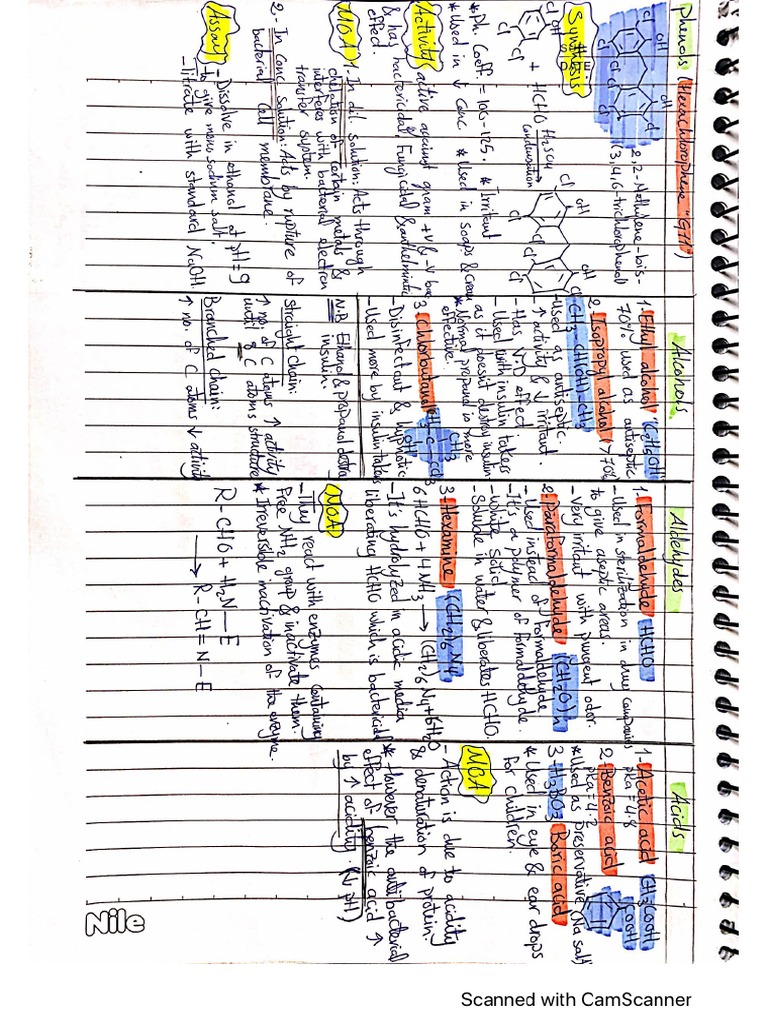 Phenols (Hexachlorophene "G11")
2,2-Methylene-bis-
(3,4,6-trichlorophenol
Synthesis
+ HCHO H2SO4
Condensation
* Ph. Coeff. = 105-125. * Irritant
* Used in ↓ conc. * Used in soaps & cream
Activity active against gram +ve & -ve bac
& has bactericidal, Fungicidal & anthelmintic
effect.
MOA 1- In dil. solution: Acts through
chelation of certain metals &
interferes with bacterial electron
transfer system.
2- In Conc. solution: Acts by rupture of
bacterial cell membrane.
Assay - Dissolve in ethanol at pH = 9
to give mono sodium salt.
- titrate with standard NaOH.
Alcohols
1- Ethyl alcohol "C2H5OH"
70% used as antiseptic
2. Isopropyl alcohol > 70%
CH3-CH(OH)-CH3
- Used as antiseptic.
- ↑ activity & ↓ irritant.
- Has V.D effect
- Used with insulin takers
as it doesn't destroy insulin
* Normal propanol is more
effective.
3 Chlorbutanol
CH3
CH3-C-CCl3
OH
- Disinfectant & hypnotic
- Used more by insulin takers
N.B Ethanol & propanol destroy
insulin.
straight chain:
↑ no. of C atoms ↑ activity
until 8 C atoms structure
Branched chain:
↑ no. of C atoms ↓ activity
Aldehydes
1- Formaldehyde HCHO
- Used in sterilization in drug companies
to give aseptic areas.
- Very irritant with pungent odor.
2. Paraformaldehyde (CH2O)n
- Used instead of formaldehyde
- It's a polymer of formaldehyde.
- White Solid
- Soluble in water & liberates HCHO.
3. Hexamine (CH2)6N4
6HCHO + 4NH3 → (CH2)6N4 + 6H2O
- It's hydrolyzed in acidic media
liberating HCHO which is bactericidal
MOA
- They react with enzymes containing
Free NH2 group & inactivate them.
* Irreversible inactivation of the enzyme.
R-CHO + H2N-E
→ R-CH=N-E
Acids
1- Acetic acid CH3COOH
pka = 4.8
2- Benzoic acid COOH
pka = 4.2
* Used as preservative (Na salt)
3- H3BO3 Boric acid
* Used in eye & ear drops
for children.
MOA
- Action is due to acidity
& denaturation of protein.
* However the antibacterial
effect of benzoic acid ↑
by ↑ acidity. (↓ pH)
Nile
Scanned with CamScanner